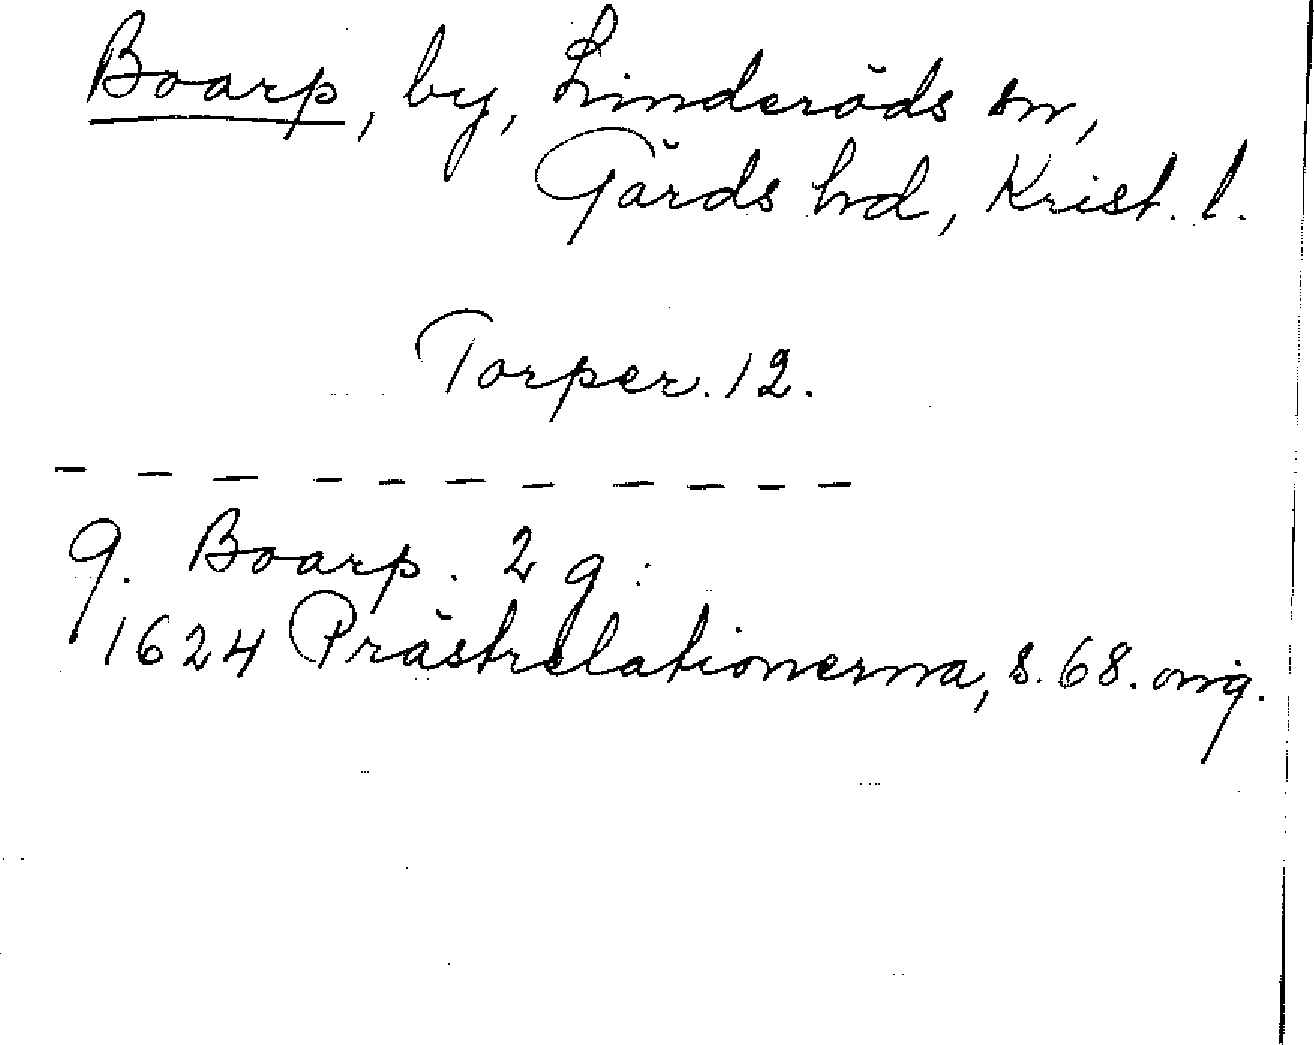 Boarp, by, Linderöds sn,
Gärds hd, Krist. l.
Torper. 12.
- - - - - - - - - - -
9. Boarp. 2 g:
1624 Prästrelationerna, s. 68. orig.